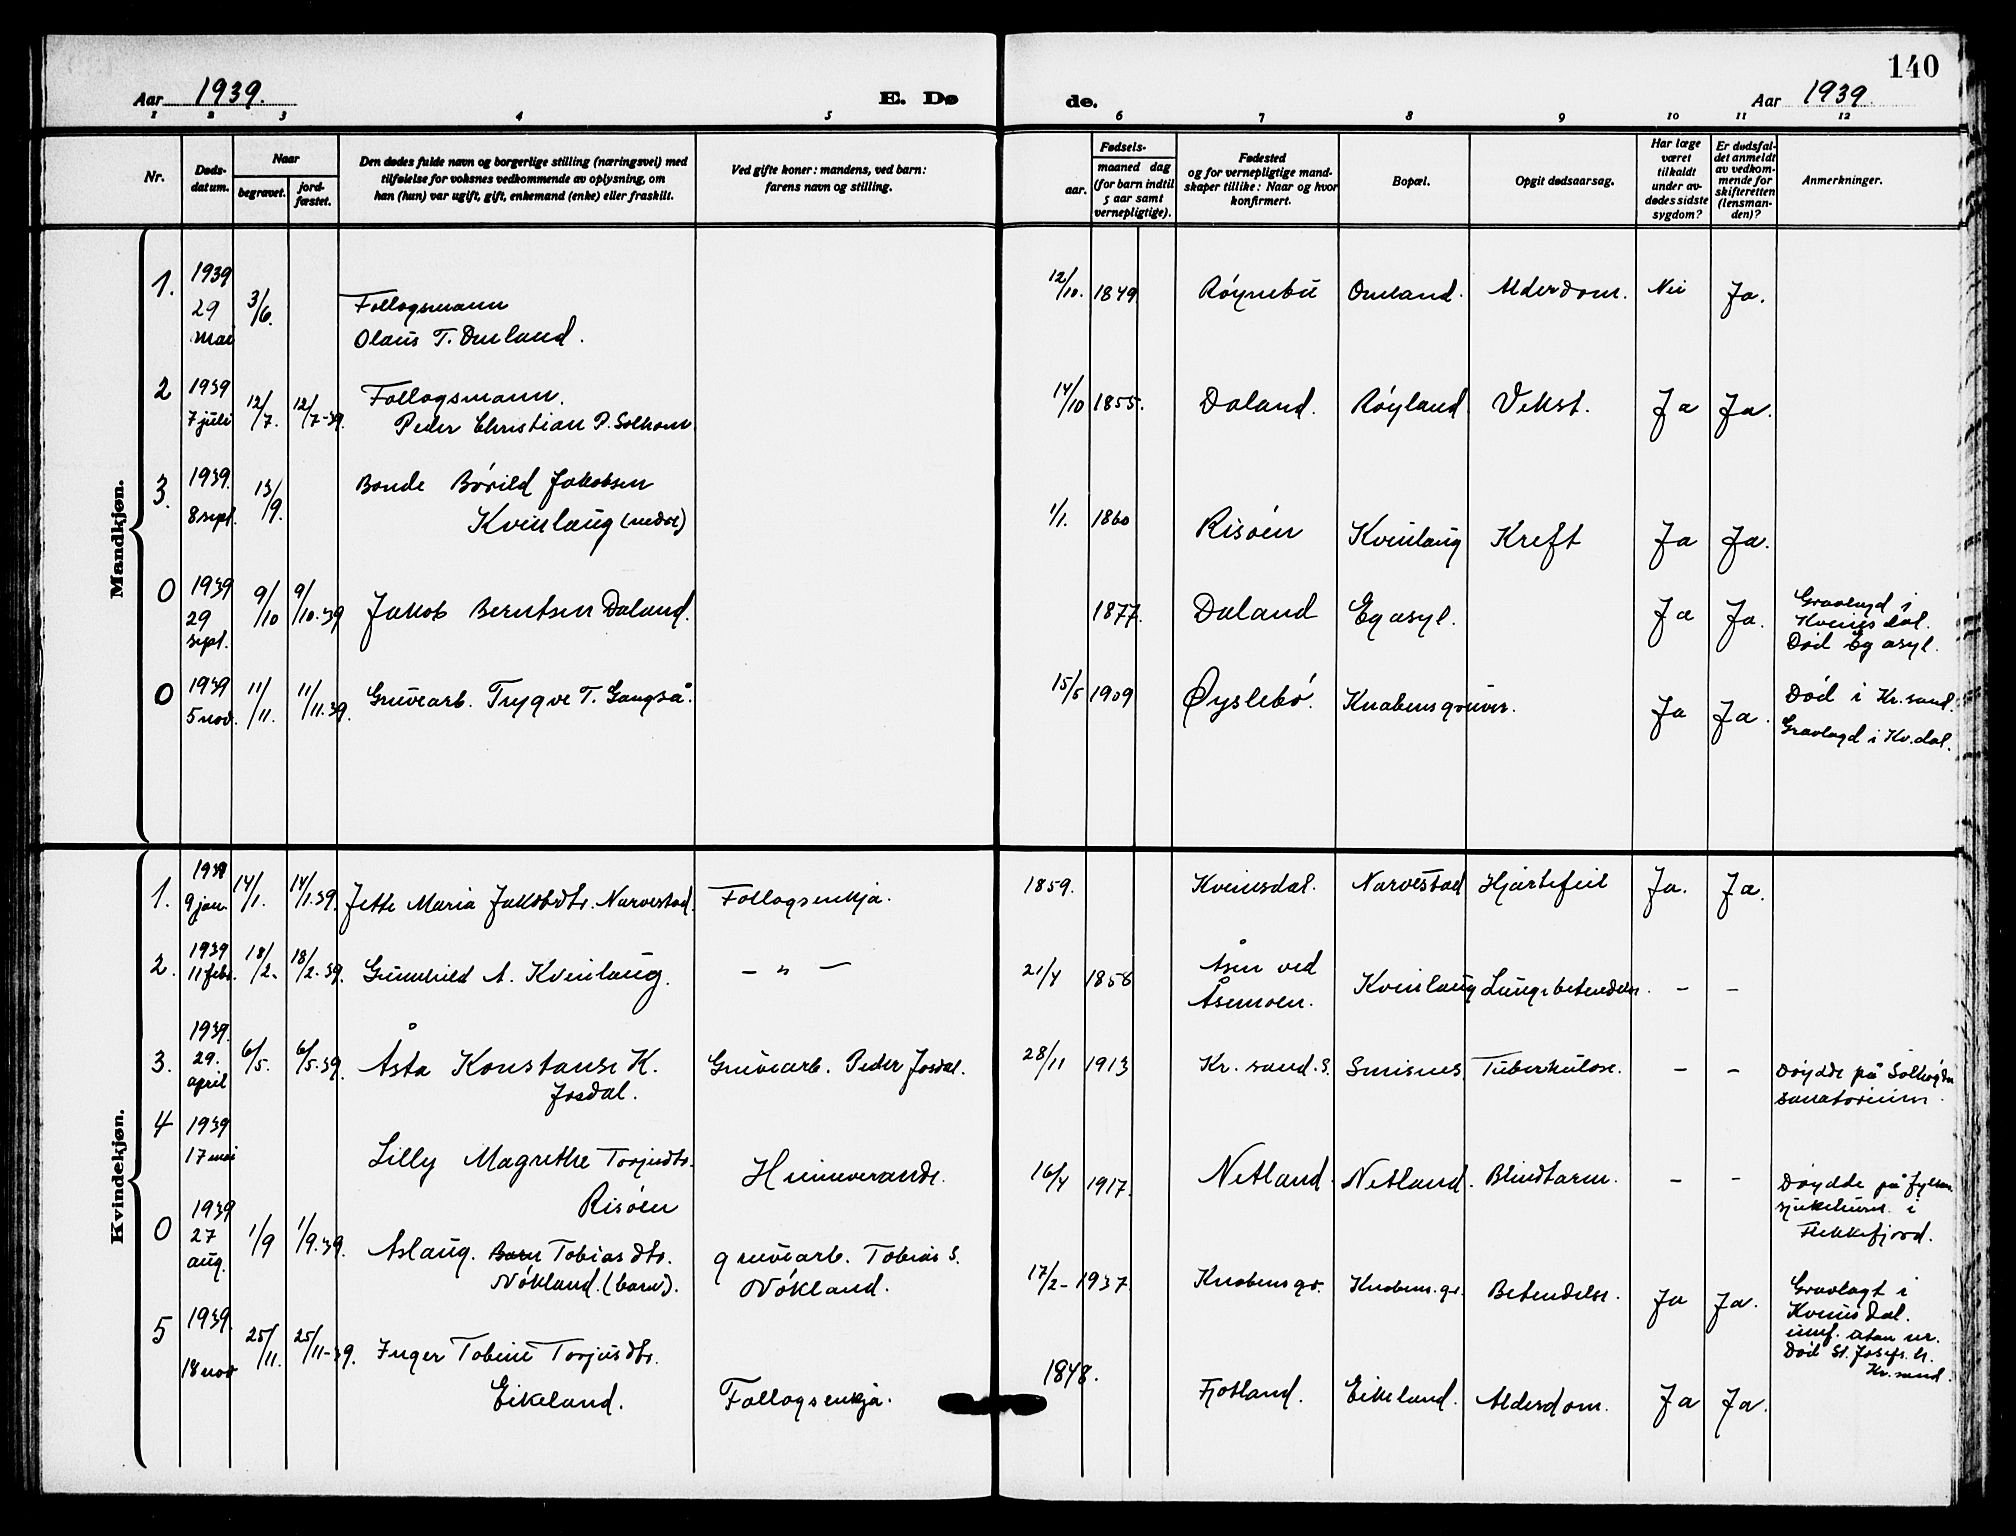 140
Aar 1939.
E. Dø
de.
Aar 1939.
1 2 3 4 5 6 7 8 9 10 11 12
Nr.
Døds-
datum.
Naar
begravet.
jord-
fæstet.
Den dødes fulde navn og borgerlige stilling (næringsvei) med
tilføielse for voksnes vedkommende av oplysning, om
han (hun) var ugift, gift, enkemand (enke) eller fraskilt.
Ved gifte koner: mandens, ved barn:
farens navn og stilling.
Fødsels-
aar.
maaned dag
(for barn indtil
5 aar samt
vernepligtige).
Fødested
og for vernepligtige mand-
skaper tillike: Naar og hvor
konfirmert.
Bopæl.
Opgit dødsaarsag.
Har læge
været
tilkaldt
under av-
dødes sidste
sygdom?
Er dødsfal-
det anmeldt
av vedkom-
mende for
skifteretten
(lensman-
den)?
Anmerkninger.
Mandkjøn.
1. 1939
29
mai
3/6.
Follogsmann
Olaus T. Omland.
12/10. 1849 Røynebu Omland. Alderdom. Nei Ja.
2 1939
7 juli
12/7. 12/7-39.
Follogsmann.
Peder Christian P. Solhom
14/10 1855. Daland. Røyland Vekst. Ja Ja.
3. 1939.
8 sept.
13/9.
Bonde Børild Jakobsen
Kvinlaug (nedre)
1/1. 1860 Risøen Kvinlaug Kreft Ja Ja.
0 1939
29
sept.
9/10 9/10.39
Jakob Berntsen Daland.
1877. Daland Eg asyl. Ja Ja.
Gravlagd i
Kvinesdal.
Død Eg asyl.
0 1939
5 nov.
11/11. 11/11.39.
Gruvearb. Trygve T. Gangså.
15/5 1909 Øyslebø. Knabens gruver. Ja Ja.
Død i Kr.sand.
Gravlagd i Kv.dal.
Kvindekjøn.
1. 1939
9 jan.
14/1. 14/1.39.
Jette Maria Jakobdtr. Narvestad. Follogsenkja.
1859. Kvinesdal. Narvestad Hjartefeil Ja. Ja.
2. 1939
11 febr.
18/2. 18/2.39.
Gunnhild A. Kvinlaug. — " —
21/4 1858
Åsen ved
Åsemoen.
Kvinlaug Lungebetendelse. - -
3. 1939.
29.
april
6/5. 6/5.39.
Åsta Konstanse K.
Josdal.
Gruvearb. Peder Josdal.
28/11 1913 Kr.sand.S. Smisnes. Tuberkulose. - -
Døydde på Solhøgda
sanatorium.
4 1939
17 mai
Lilly Magrethe Torjusdtr.
Risøen
Heimeverande.
16/4 1917. Netland. Netland. Blindtarm. - -
Døydde på fylkes
sjukehuset i
Flekkefjord.
0 1939
27
aug.
1/9 1/9.39.
Aslaug. Barn Tobiasdtr.
Nøkland. (barn).
gruvearb. Tobias S.
Nøkland.
17/2- 1937. Knabens gr. Knabens gr. Betendelse. Ja Ja.
Gravlagt i
Kvinesdal.
innf. utan nr.
Død St. Josefs h.
Kr.sand.
5 1939.
18 nov
25/11. 25/11-39.
Inger Tobine Torjusdtr.
Eikeland.
Follogsenkja.
1848. Fjotland. Eikeland. Alderdom. Ja Ja.